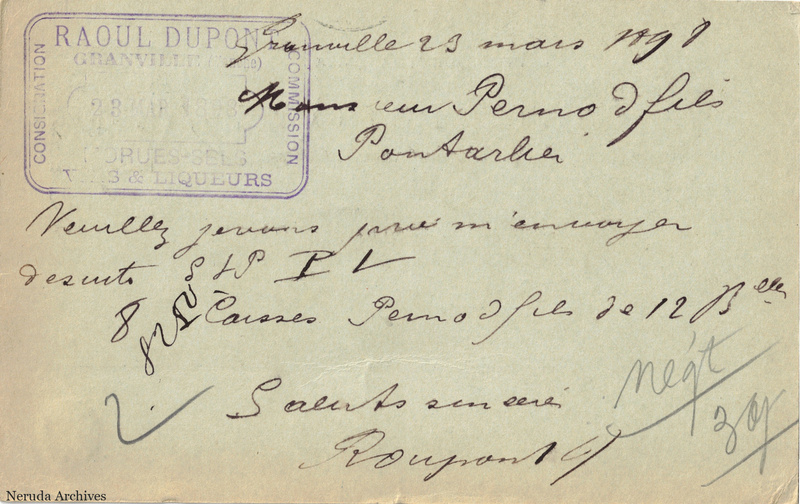 RAOUL DUPONT
GRANVILLE
CONSIGNATION
COMMISSION
MORUES-SELS
VINS & LIQUEURS
Granville 23 mars 1898
Monsieur Pernod fils
Pontarlier
Veuillez je vous prie m'envoyer
de suite P V
8 Caisses Pernod fils de 12 Blles
8252
Saluts sincères
négt
Neruda Archives